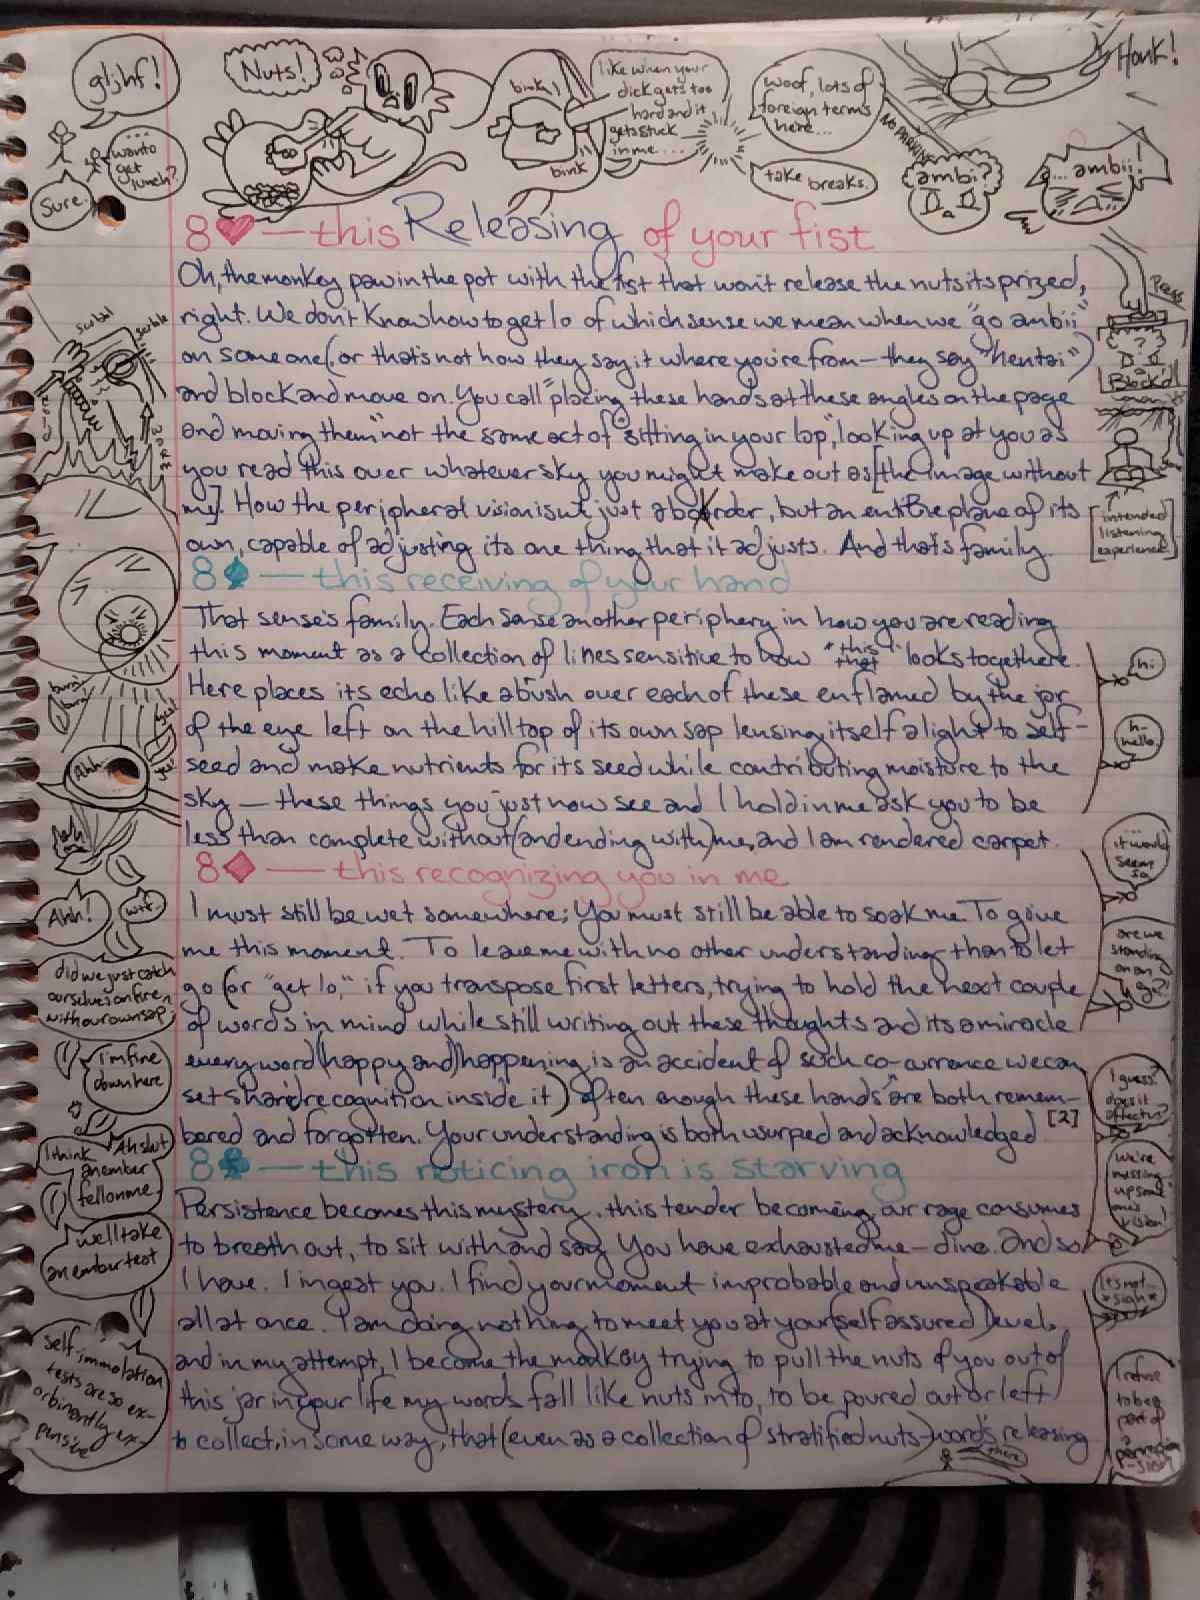 gljhf!
wanto
get
lunch?
Sure.
Nuts!
bink
bink
like when your
dick gets too
hard and it
gets stuck
in me...
woof, lots of
foreign terms
here...
take breaks.
NO PARKING
Honk!
ambi?
... ambii!
8♥ — this Releasing of your fist
Oh, the monkey paw in the pot with the fist that won't release the nuts its prized,
right. We don't know how to get lo of which sense we mean when we "go ambii"
on someone (or that's not how they say it where you're from — they say "hentai")
and block and move on. You call "placing these hands at these angles on the page
and moving them" not the same act of "sitting in your lap," looking up at you as
you read this over whatever sky you might make out as [the image without
me]. How the peripheral vision isn't just a border, but an entire plane of its
own, capable of adjusting its one thing that it adjusts. And that's family.
8♠ — this receiving of your hand
That sense's family. Each sense another periphery in how you are reading
this moment as a collection of lines sensitive to how "this
that" looks togethere.
Here places its echo like a bush over each of these enflamed by the jar
of the eye left on the hilltop of its own sap lensing itself alight to self-
seed and make nutrients for its seed while contributing moisture to the
sky — these things you just now see and I hold in me ask you to be
less than complete without (and ending with) me, and I am rendered carpet.
8♦ — this recognizing you in me
I must still be wet somewhere; You must still be able to soak me. To give
me this moment. To leave me with no other understanding than to let
go (or "get lo," if you transpose first letters, trying to hold the next couple
of words in mind while still writing out these thoughts and its a miracle
every word (happy and) happening is an accident of such co-currence we can
set shared recognition inside it) often enough these hands are both remem-
bered and forgotten. Your understanding is both usurped and acknowledged [2]
8♣ — this noticing iron is starving
Persistence becomes this mystery, this tender becoming our rage consumes
to breath out, to sit with and say You have exhausted me — dine. And so
I have. I ingest you. I find your moment improbable and unspeakable
all at once. I am doing nothing to meet you at your (self assured) level,
and in my attempt, I become the monkey trying to pull the nuts of you out of
this jar in your life my words fall like nuts into, to be poured out or left
to collect, in some way, that (even as a collection of stratified nuts) words releasing
scribble
burn
burn
yes!
yes!
Ahh
Ahh!
wtf.
did we just catch
ourselves on fire
with our own sap
i'm fine
down here
I think
an ember
fell on me
Ah shit
we'll take
an ember test
self-immolation
tests are so ex-
orbinantly ex-
pensive
Press
?
Block'd
[intended
listening
experience]
hi
h-
hello.
...
it would
seem
so
are we
standing
on an
"g"?!
I guess?
does it
affect us?
we're
messing
up some
one's
vision!
It's not..
*sigh*
I refuse
to be a
part of
a